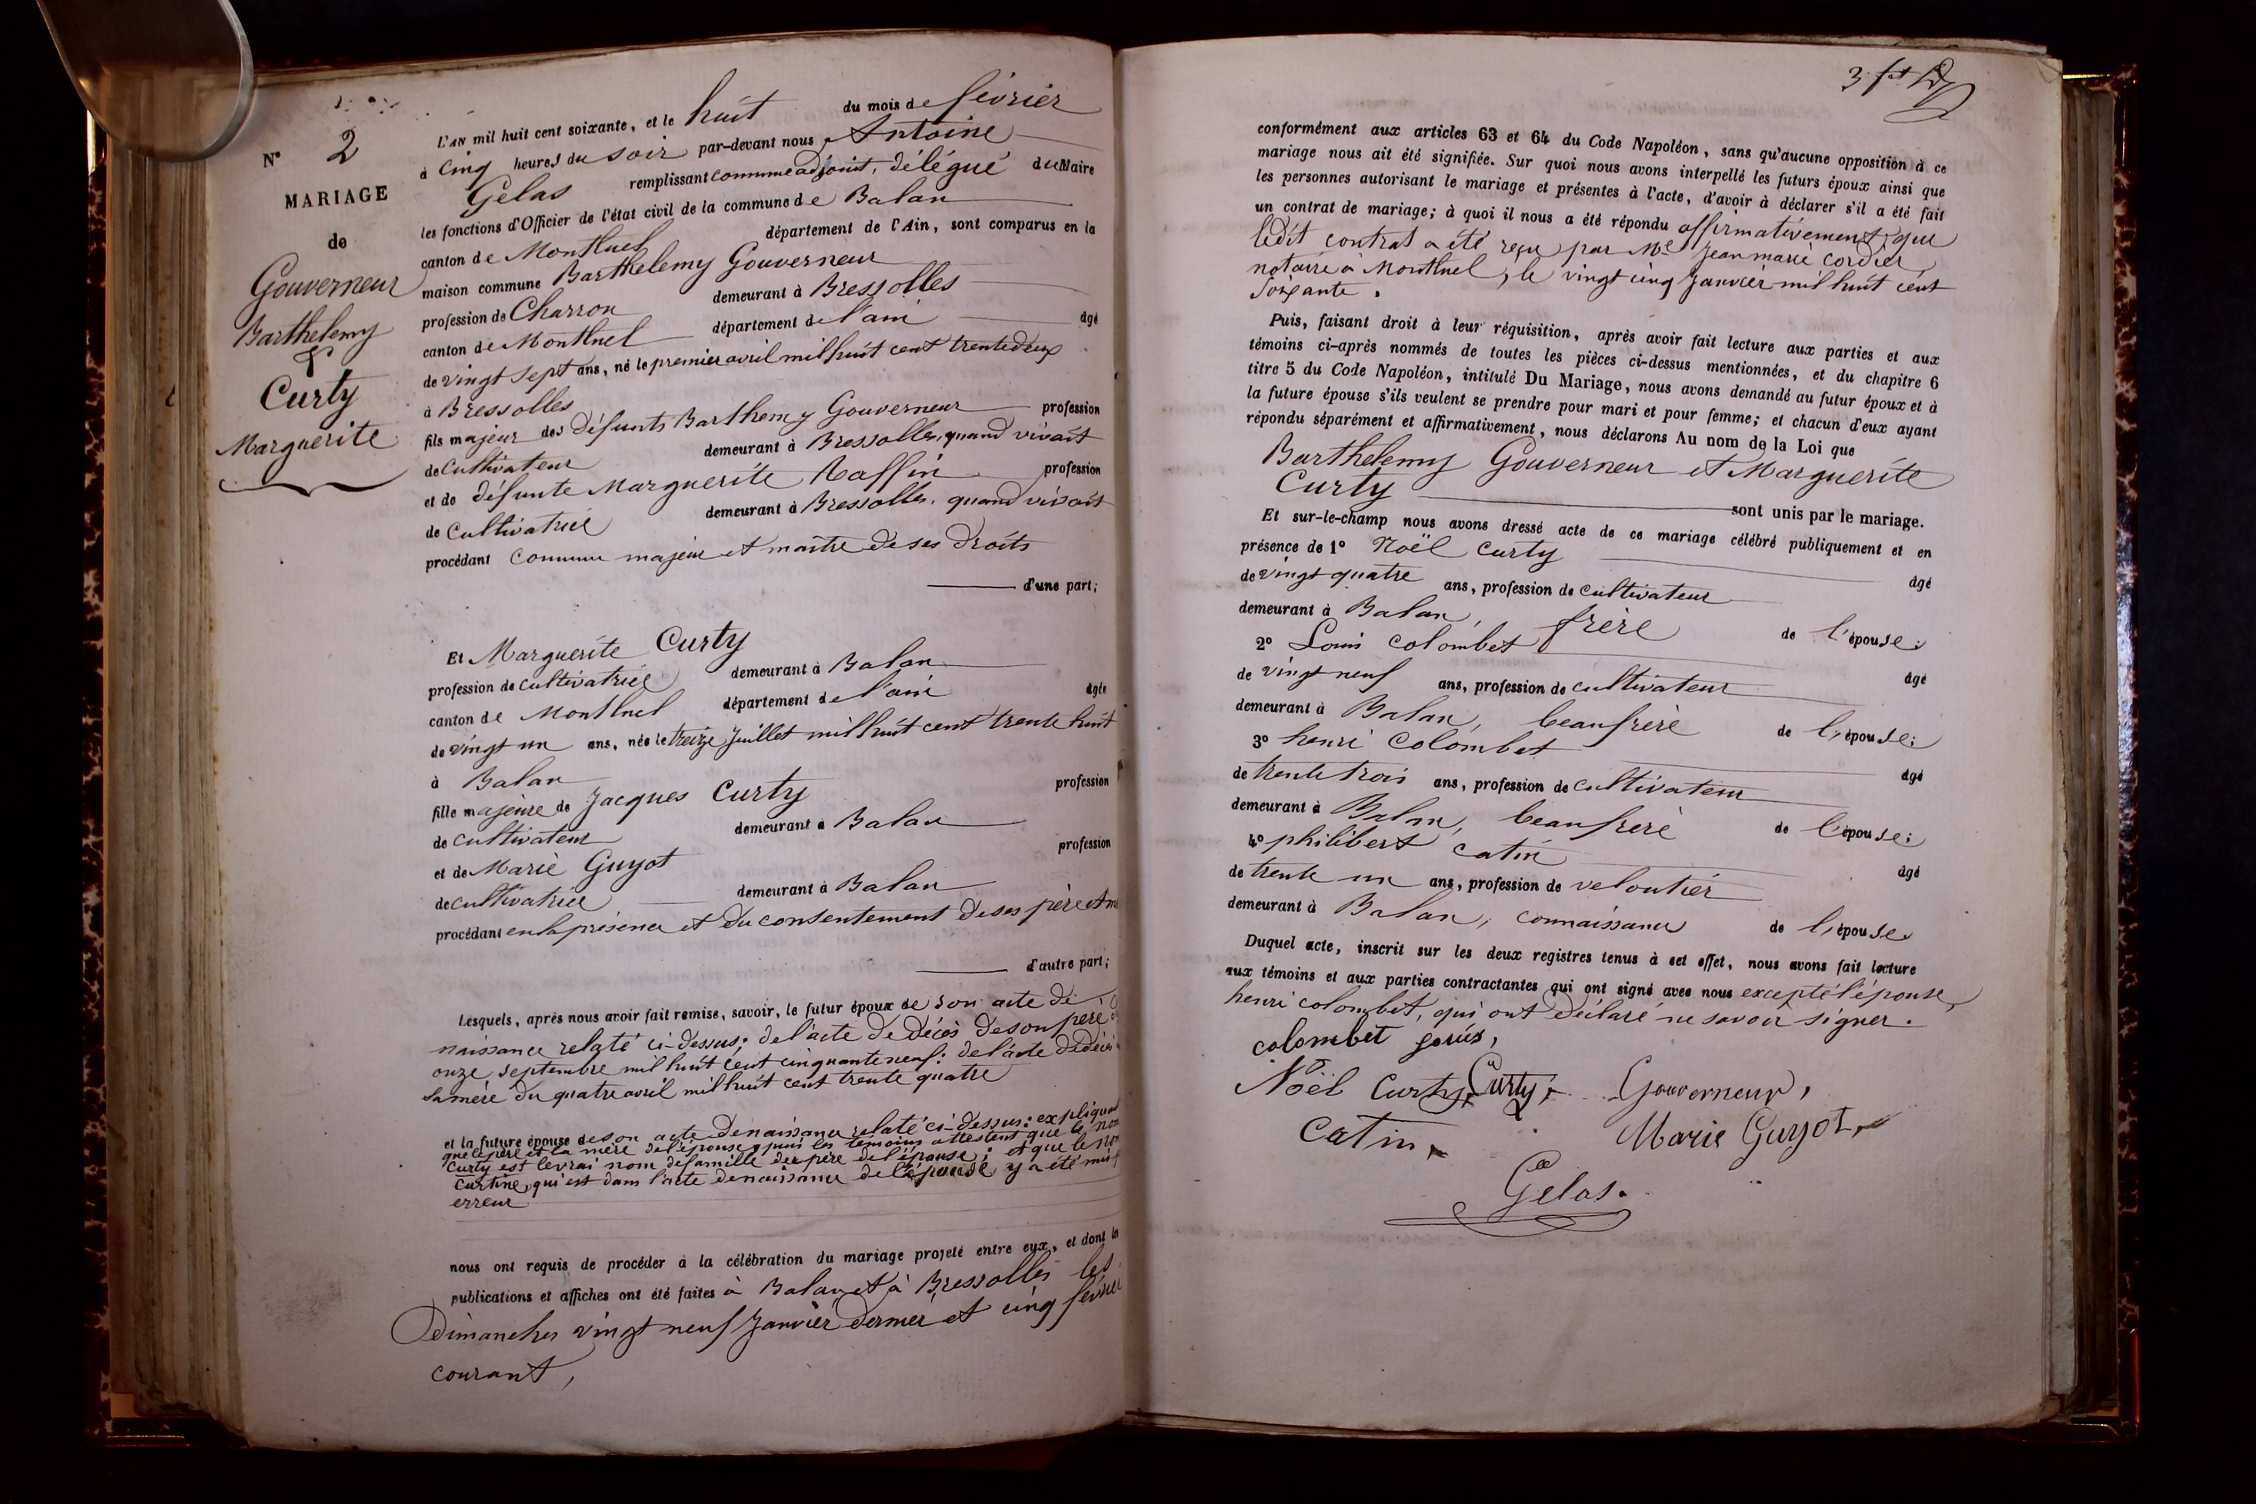 N° 2
MARIAGE
de
Gouverneur
Barthelemy
&
Curty
Marguerite
L'AN mil huit cent soixante, et le huit du mois de février
à cinq heures du soir par-devant nous Antoine
Gelas remplissant comme adjoint, délégué du Maire
les fonctions d'Officier de l'état civil de la commune de Balan
canton de Montluel département de l'Ain, sont comparus en la
maison commune Barthelemy Gouverneur
profession de Charron demeurant à Bressolles
canton de Montluel département de l'ain âgé
de vingt sept ans, né le premier avril mil huit cent trente deux
à Bressolles
fils majeur des défunts Barthemy Gouverneur profession
de cultivateur demeurant à Bressolles, quand vivait
et de défunte Marguerite Raffin profession
de Cultivatrice demeurant à Bressolles. quand vivait
procédant comme majeur et maitre de ses droits
d'une part;
Et Marguerite Curty
profession de cultivatrice demeurant à Balan
canton de Montluel département de l'ain âgée
de vingt un ans, née le treize Juillet mil huit cent trente huit
à Balan
fille majeure de Jacques Curty profession
de cultivateur demeurant à Balan
et de Marie Guyot profession
de cultivatrice demeurant à Balan
procédant en la présence et du consentement de ses père et
d'autre part;
Lesquels, après nous avoir fait remise, savoir, le futur époux de son acte de
naissance relaté ci-dessus; de l'acte de décès de son père
onze septembre mil huit cent cinquante neuf: de l'acte de décès
sa mère du quatre avril mil huit cent trente quatre
et la future épouse de son acte de naissance relaté ci-dessus: expliquant
que le père et la mère de l'épouse, puis les témoins attestent que le nom
Curty est le vrai nom de famille du père de l'épouse; et que le nom
Curtine, qui est dans l'acte de naissance de l'épouse y a été mis
erreur
nous ont requis de procéder à la célébration du mariage projeté entre eux, et dont les
publications et affiches ont été faites à Balan et à Bressolles les
Dimanches vingt neuf Janvier dernier et cinq février
courant,
conformément aux articles 63 et 64 du Code Napoléon, sans qu'aucune opposition à ce
mariage nous ait été signifiée. Sur quoi nous avons interpellé les futurs époux ainsi que
les personnes autorisant le mariage et présentes à l'acte, d'avoir à déclarer s'il a été fait
un contrat de mariage; à quoi il nous a été répondu affirmativement, que
ledit contrat a été reçu par Me Jean marie cordier
notaire à Montluel, le vingt cinq Janvier mil huit cent
soixante.
Puis, faisant droit à leur réquisition, après avoir fait lecture aux parties et aux
témoins ci-après nommés de toutes les pièces ci-dessus mentionnées, et du chapitre 6
titre 5 du Code Napoléon, intitulé Du Mariage, nous avons demandé au futur époux et à
la future épouse s'ils veulent se prendre pour mari et pour femme; et chacun d'eux ayant
répondu séparément et affirmativement, nous déclarons Au nom de la Loi que
Barthelemy Gouverneur et Marguerite
Curty sont unis par le mariage.
Et sur-le-champ nous avons dressé acte de ce mariage célébré publiquement et en
présence de 1° Noël Curty âgé
de vingt quatre ans, profession de cultivateur
demeurant à Balan, frère de l'épouse;
2° Louis colombet âgé
de vingt neuf ans, profession de cultivateur
demeurant à Balan, beaufrère de l'épouse;
3° henri Colombet âgé
de trente trois ans, profession de cultivateur
demeurant à Balan, beaufrère de l'épouse;
4° philibert catin âgé
de trente un ans, profession de veloutier
demeurant à Balan, connaissance de l'épouse.
Duquel acte, inscrit sur les deux registres tenus à cet effet, nous avons fait lecture
aux témoins et aux parties contractantes qui ont signé avec nous excepté l'épouse,
henri colombet, qui ont déclaré ne savoir signer.
colombet
Noël Curty, Curty, Gouverneur,
Catin Marie Guyot
Gelas.